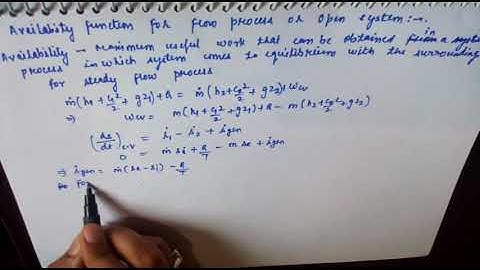 Availability function for flow process or open system:-
Availability - Maximum useful work that can be obtained from a system in
process in which system comes to equilibrium with the surrounding
for steady flow process
ṁ(h₁ + C₁²/2 + gz₁) + Q = ṁ(h₂ + C₂²/2 + gz₂) + Wcv
⇒ Wcv = m(h₁ + C₁²/2 + gz₁) + Q - m(h₂ + C₂²/2 + gz₂)
(ds/dt)c.v = ṡ₁ - ṡ₂ + ṡgen
0 = ṁ si + Q/T - ṁ se + ṡgen
⇒ ṡgen = ṁ(se - si) - Q/T
Fo